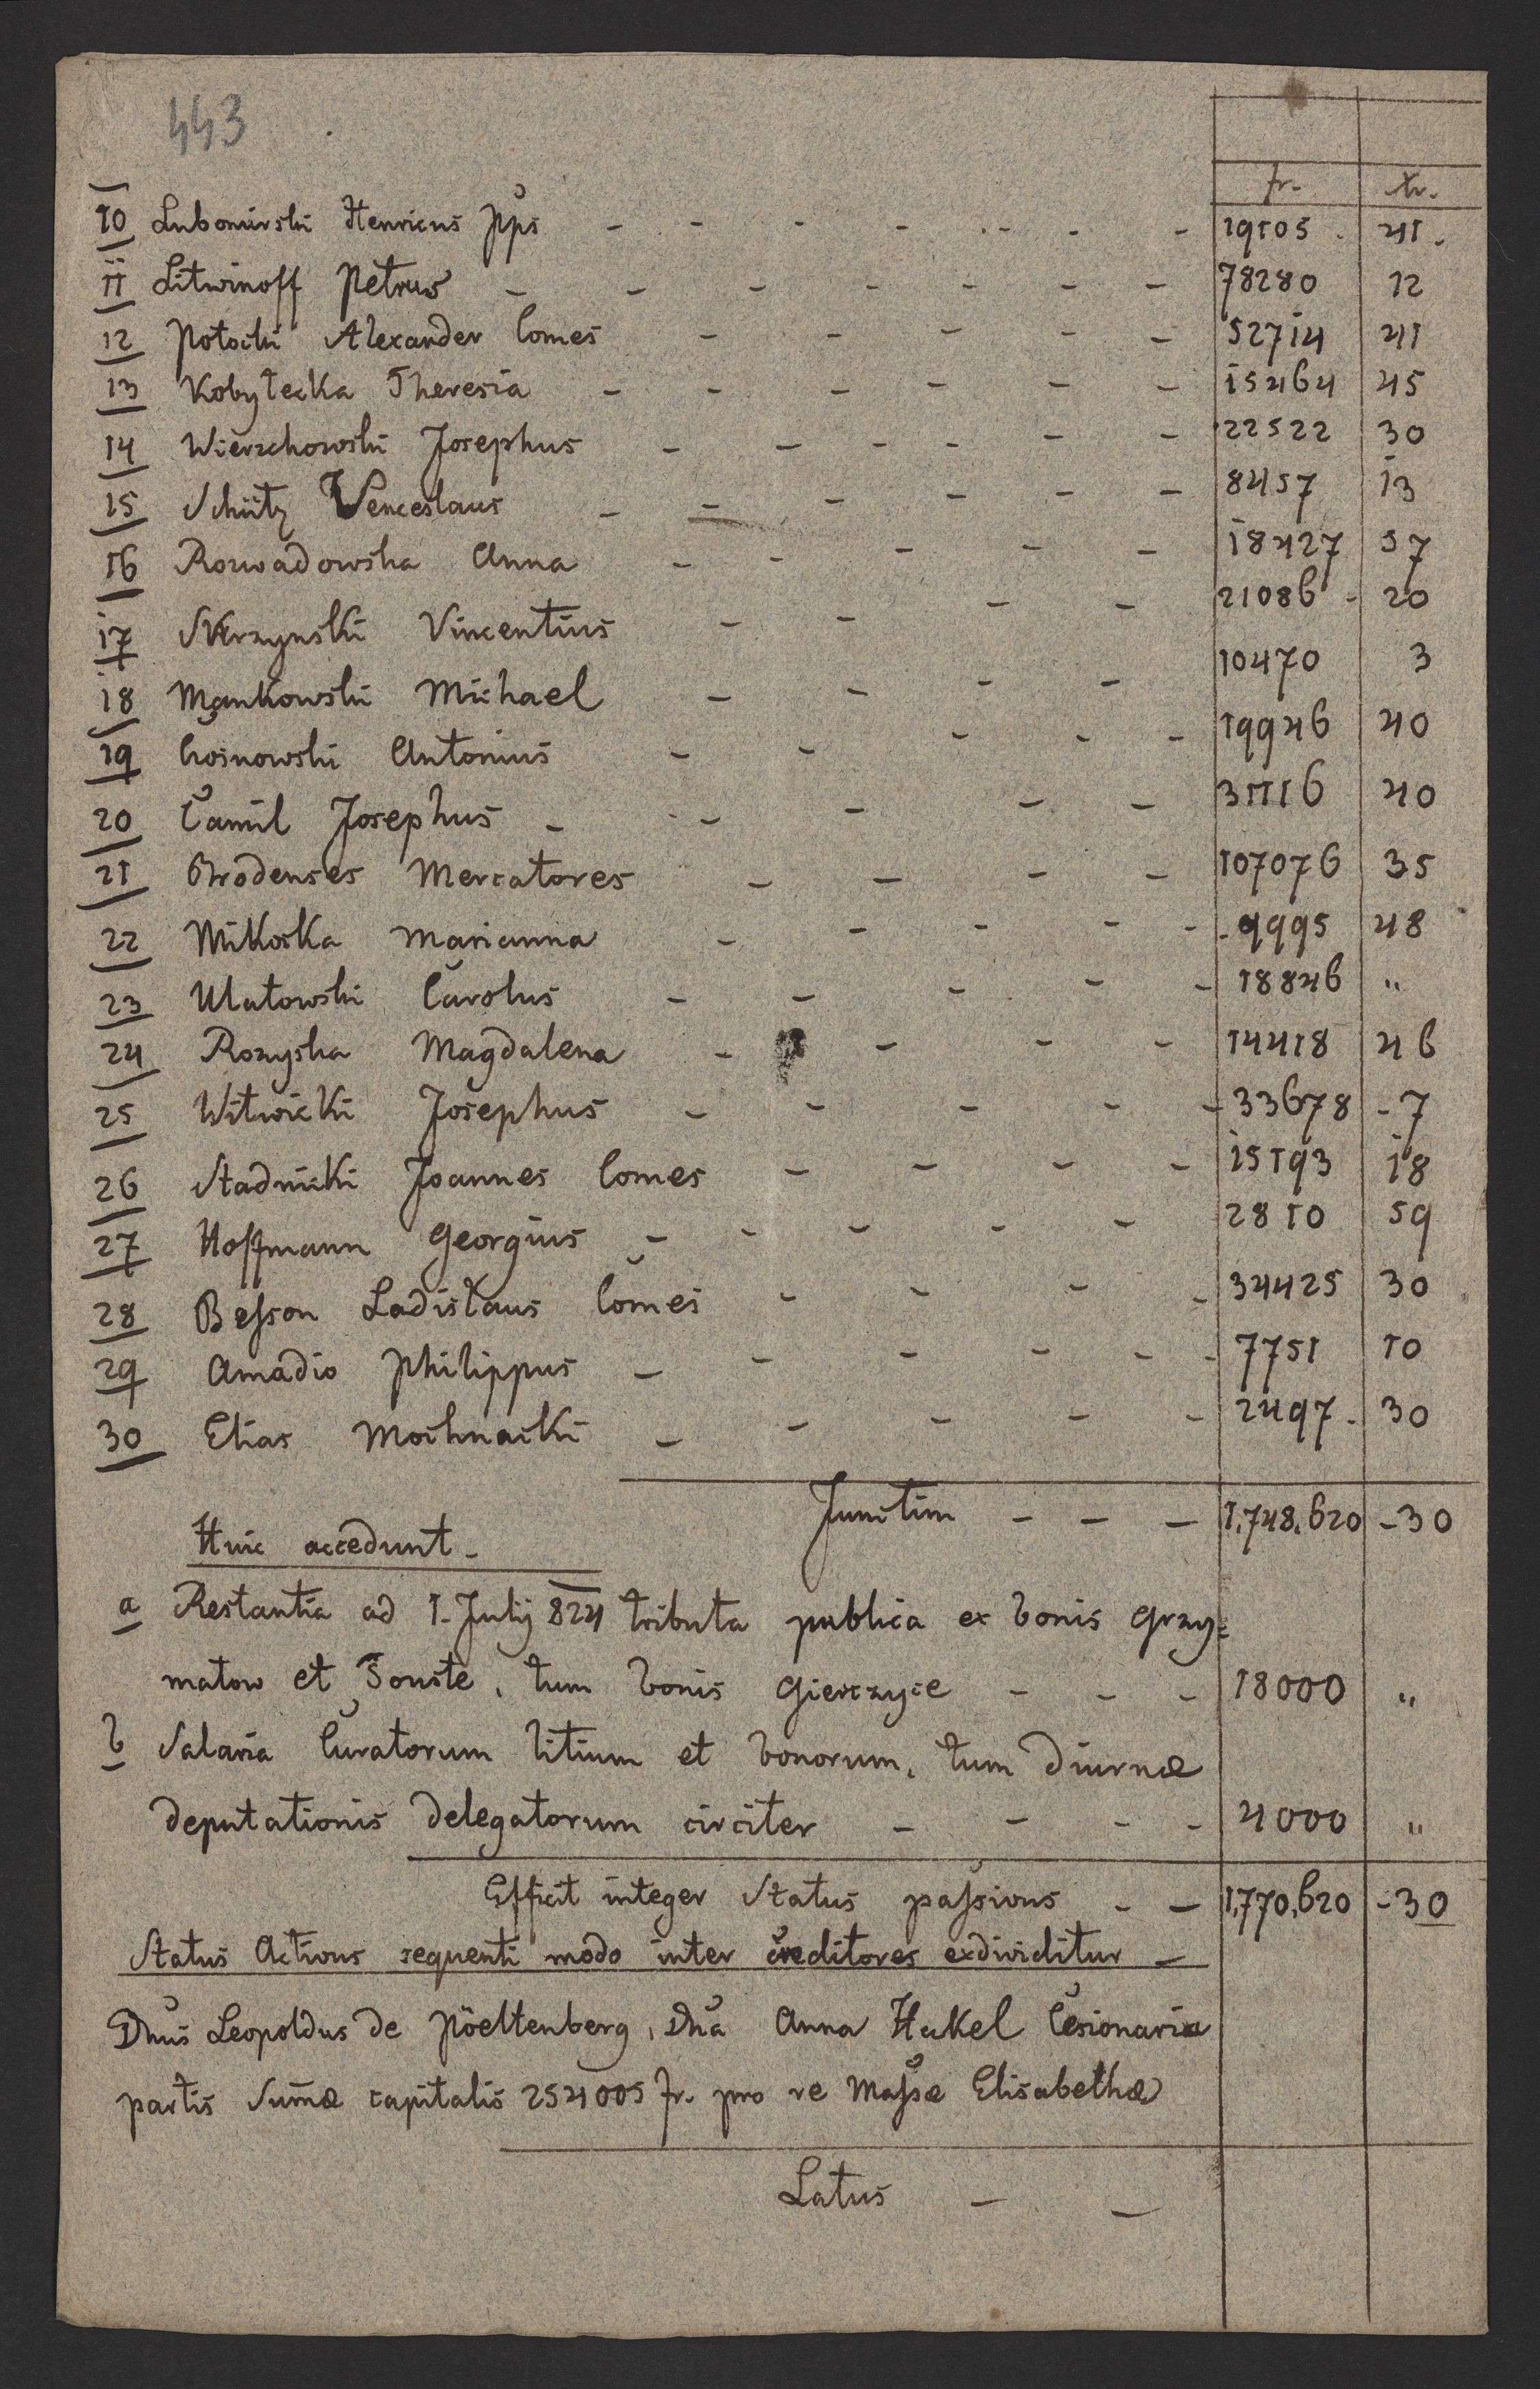 443
fr. xr.
10 Lubomirski Henricus Pps - - - - - - - 19105 . 41 .
11 Litwinoff Petrus - - - - - - - 78280 12
12 Potocki Alexander Comes - - - - - 52714 41
13 Kobyłecka Theresia - - - - - - 15464 45
14 Wierzchowski Josephus - - - - - - 22522 30
15 Schütz Venceslaus - - - - - - 8457 13
16 Rozwadowska Anna - - - - - 18427 57
17 Skrzynski Vincentius - - - - 21086 - 20
18 Mańkowski Michael - - - - 10470 3
19 Cosnowski Antonius - - - - - 19946 40
20 Camil Josephus - - - - - 31116 40
21 Brodenses Mercatores - - - - 107076 35
22 Mikoska Marianna - - - - - 9995 48
23 Ulatowski Carolus - - - - - 18846 "
24 Rozyska Magdalena - - - - 14418 46
25 Witwicki Josephus - - - - - 33678 - 7
26 Stadnicki Joannes Comes - - - - 15193 18
27 Hoffmann Georgius - - - - - 2810 59
28 Besson Ladislaus Comes - - - - 34425 30
29 Amadio Philippus - - - - - - 7751 10
30 Elias Mochnacki - - - - - 2497 . 30
Junctim - - - 1,748,620 - 30
Huic accedunt -
a Restantia ad 1. July 824 tributa publica ex bonis Grzy=
małow et Touste, tum bonis Gierczyce - - - 18000 "
b Salaria Curatorum litium et bonorum, tum diurnæ
deputationis delegatorum circiter - - - - 4000 "
Efficit integer Status passivus - - 1,770,620 - 30
Status Activus sequenti modo inter creditores exdividitur -
Dnus Leopoldus de Pöeltenberg, Dna Anna Hekel Cesionaria
partis Sumæ capitalis 254005 fr. pro re Massæ Elisabethæ
Latus - -